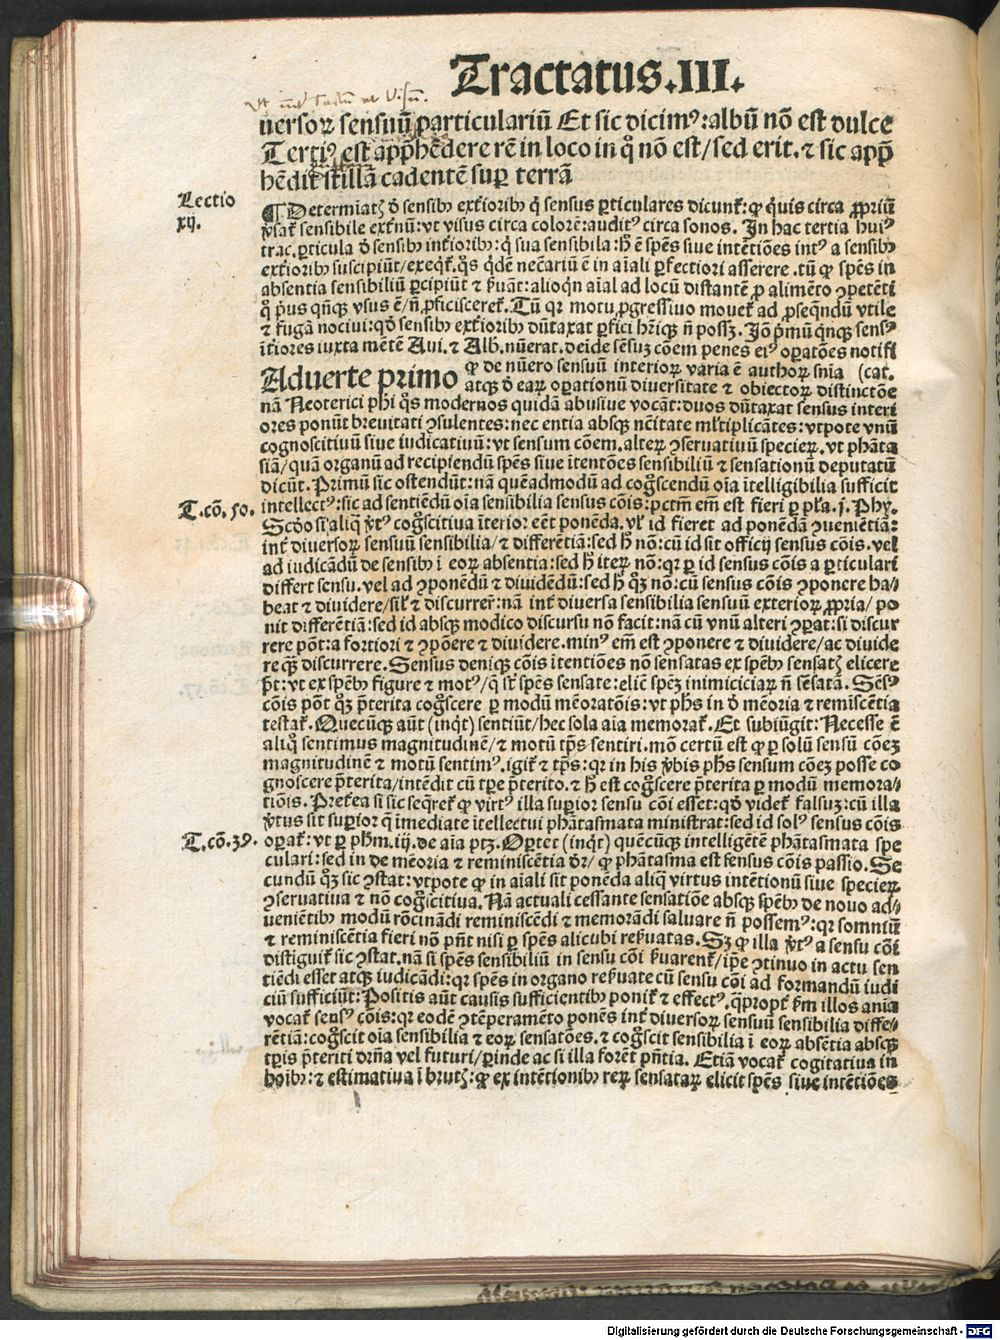 Tractatus.III.
uersoꝝ sensuū particulariū Et sic dicimꝰ:albū nō est dulce
Tertiꝰ est app̄hēdere rē in loco in q̊ nō est/sed erit.⁊ sic app̄
hēdit stillā cadentē sup̱ terrā
Lectio
xij.
¶Determiat᷑ ð sensibꝫ exťioribꝫ q̇ sensus ꝑticulares dicunť:ꝙ q̇uis circa ꝓpriū
ṽsať sensibile exťnū:vt visus circa colorē:auditꝰ circa sonos. In hac tertia huiꝰ
trac.ꝑticula ð sensibꝫ inťioribꝫ:q̇ sua sensibila:h̄ ē sp̄es siue intētiōes intꝰ a sensibꝫ
exťioribꝫ suscipiūt/exeq̄ť.q̊s q̇dē necāriū ē in aīali ꝑfectiori asserere.tū ꝙ sp̄es in
absentia sensibiliū ꝑcipiūt ⁊ ẜuāt:alioqn̄ aīal ad locū distantē ꝓ alimēto ꝯpetēti
q̊ pͥus qn̄qꝫ vsus ē/n̄ ꝓficisceret᷑.Tū qꝛ motu ꝓgressiuo mouet᷑ ad ꝓseq̄ndū vtile
⁊ fugā nociui:qð sensibꝫ exťioribꝫ dūtaxat ꝑfici hr̄iqꝫ n̄ possꝫ. Iō pͥmū qͥnqꝫ sensꝰ
īťiores iuxta mētē Aui.⁊ Alb.nūerat.deīde sēsuꝫ cōem penes eiꝰ oꝑatōes notifi
Aduerte primo ꝙ de nūero sensuū interioꝝ varia ē authoꝝ snīa (cat.
atqꝫ ð eaꝝ oꝑationū diuersitate ⁊ obiectoꝝ distinctōe
nā Neoterici phī q̊s modernos quidā abusiue vocāt:duos dūtaxat sensus interi
ores ponūt breuitati ꝯsulentes:nec entia absqꝫ nc̄itate ml̄tiplicātes:vtpote vnū
cognoscitiuū siue iudicatiuū:vt sensum cōem.alteꝝ ꝯseruatiuū specieꝝ.vt phāta
siā/quā organū ad recipiendū sp̄es siue ītentōes sensibiliū ⁊ sensationū deputatū
dicūt.Primū sic ostendūt:nā quēadmodū ad cog̊scendū oīa ītelligibilia sufficit
T.cō.50. intellectꝰ:sic ad sentiēdū oīa sensibilia sensus cōis:pctm̄ em̄ est fieri ꝑ pl̄a.j.Phy.
Scðo si aliq̄ v̓tꝰ cog̊scitiua īterior eēt ponēda.vl̓ id fieret ad ponēdā ꝯueniētiā:
inť diuersoꝝ sensuū sensibilia/⁊ differētiā:sed h̄ nō:cū id sit officij sensus cōis.vel
ad iudicādū de sensibꝫ ī eoꝝ absentia:sed h̄ iteꝝ nō:qꝛ ꝑ id sensus cōis a ꝑticulari
differt sensu.vel ad ꝯponēdū ⁊ diuidēdū:sed h̄ qͦꝫ nō:cū sensus cōis ꝯponere ha/
beat ⁊ diuidere/sil̓ ⁊ discurrer̓:nā inť diuersa sensibilia sensuū exterioꝝ ꝓpria/po
nit differētiā:sed id absqꝫ modico discursu nō facit:nā cū vnū alteri ꝯꝑat:si discur
rere pōt:a fortiori ⁊ ꝯpōere ⁊ diuidere.minꝰ em̄ est ꝯponere ⁊ diuidere/ac diuide
re q̄ꝫ discurrere.Sensus deniqꝫ cōis ītentiōes nō sensatas ex sp̄ebꝫ sensat᷑ elicere
p̄t:vt ex sp̄ebꝫ figure ⁊ motꝰ/q̄ st̄ sp̄es sensate:eliē sp̄eꝫ inimiciciaꝝ n̄ sēsatā.Sēsꝰ
cōis pōt qͦꝫ p̄terita cog̊scere ꝑ modū mēoratōis:vt phs in ð mēoria ⁊ remīscētia
testať.Quecūqꝫ aūt (inqͥt) sentiūt/hec sola aīa memorať.Et subiūgit:Necesse ē
aliq̊ sentimus magnitudinē/⁊ motū tp̄s sentiri.mō certū est ꝙ ꝑ solū sensū cōeꝫ
magnitudinē ⁊ motū sentimꝰ.igit᷑ ⁊ tp̄s:qꝛ in his v̓bis phs sensum cōeꝫ posse co
gnoscere p̄terita/intēdit cū tp̄e p̄terito.⁊ h̄ est cog̊scere p̄terita ꝑ modū memora/
tiōis.Preťea si sic seq̄reť ꝙ virtꝰ illa suꝑior sensu cōi esset:qð videť falsuꝫ:cū illa
v̓tus sit suꝑior q̄ īmediate ītellectui phātasmata ministrat:sed id solꝰ sensus cōis
T.cō.39. oꝑať:vt ꝑ phm.iij.de aīa ptꝫ.Oꝑtet (inqͥt) quēcūqꝫ intelligētē phātasmata spe
culari:sed in de mēoria ⁊ reminiscētia ðr/ ꝙ phātasma est sensus cōis passio.Se
cundū qͦꝫ sic ꝯstat:vtpote ꝙ in aīali sit ponēda aliq̄ virtus intētionū siue specieꝝ
ꝯseruatiua ⁊ nō cog̊scitiua.Nā actuali cessante sensatiōe absqꝫ sp̄ebꝫ de nouo ad/
ueniētibꝫ modū rōcinādi reminiscēdi ⁊ memorādi saluare n̄ possemꝰ:qꝛ somniū
⁊ reminiscētia fieri nō pn̄t nisi ꝑ sp̄es alicubi reẜuatas.Sꝫ ꝙ illa v̓tꝰ a sensu cōi
distiguiť sic ꝯstat.nā si sp̄es sensibiliū in sensu cōi ẜuarenť/ip̄e ꝯtinuo in actu sen
tiēdi esset atqꝫ iudicādi:qꝛ sp̄es in organo reẜuate cū sensu cōi ad formandū iudi
ciū sufficiūt:Positis aūt causis sufficientibꝫ poniť ⁊ effectꝰ.q̄propť ẜm illos anīa
vocať sensꝰ cōis:qꝛ eodē ꝯtēperamēto ponēs inť diuersoꝝ sensuū sensibilia diffe/
rētiā:cog̊scit oīa sensibilia ⁊ eoꝝ sensatōes.⁊ cog̊scit sensibilia ī eoꝝ absētia absqꝫ
tp̄is p̄teriti dr̄na vel futuri/ꝑinde ac si illa forēt pn̄tia. Etiā vocať cogitatiua in
hoībꝫ:⁊ estimatiua ī brut᷑:ꝙ ex intētionibꝫ reꝝ sensataꝝ elicit sp̄es siue intētiōes
Digitalisierung gefördert durch die Deutsche Forschungsgemeinschaft - DFG